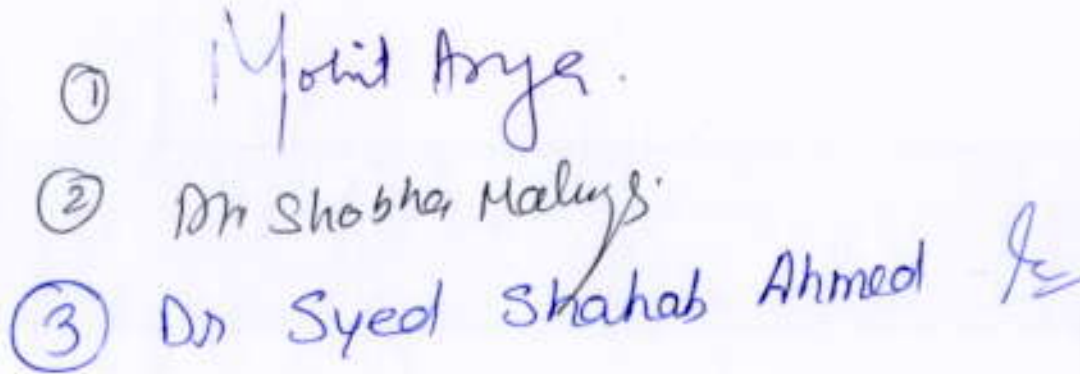 ① Mohit Arya.
② Dr Shobha
③ Dr Syed Shahab Ahmed